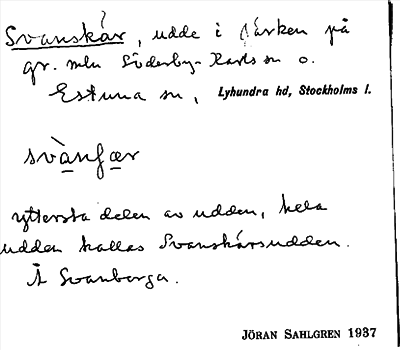 Svanskär, udde i Järken på
gr. mln Söderby-Karls sn o.
Estuna sn, Lyhundra hd, Stockholms l.
svànſær
yttersta delen av udden, hela
udden kallas Svanskärsudden.
Å Svanberga.
JÖRAN SAHLGREN 1937